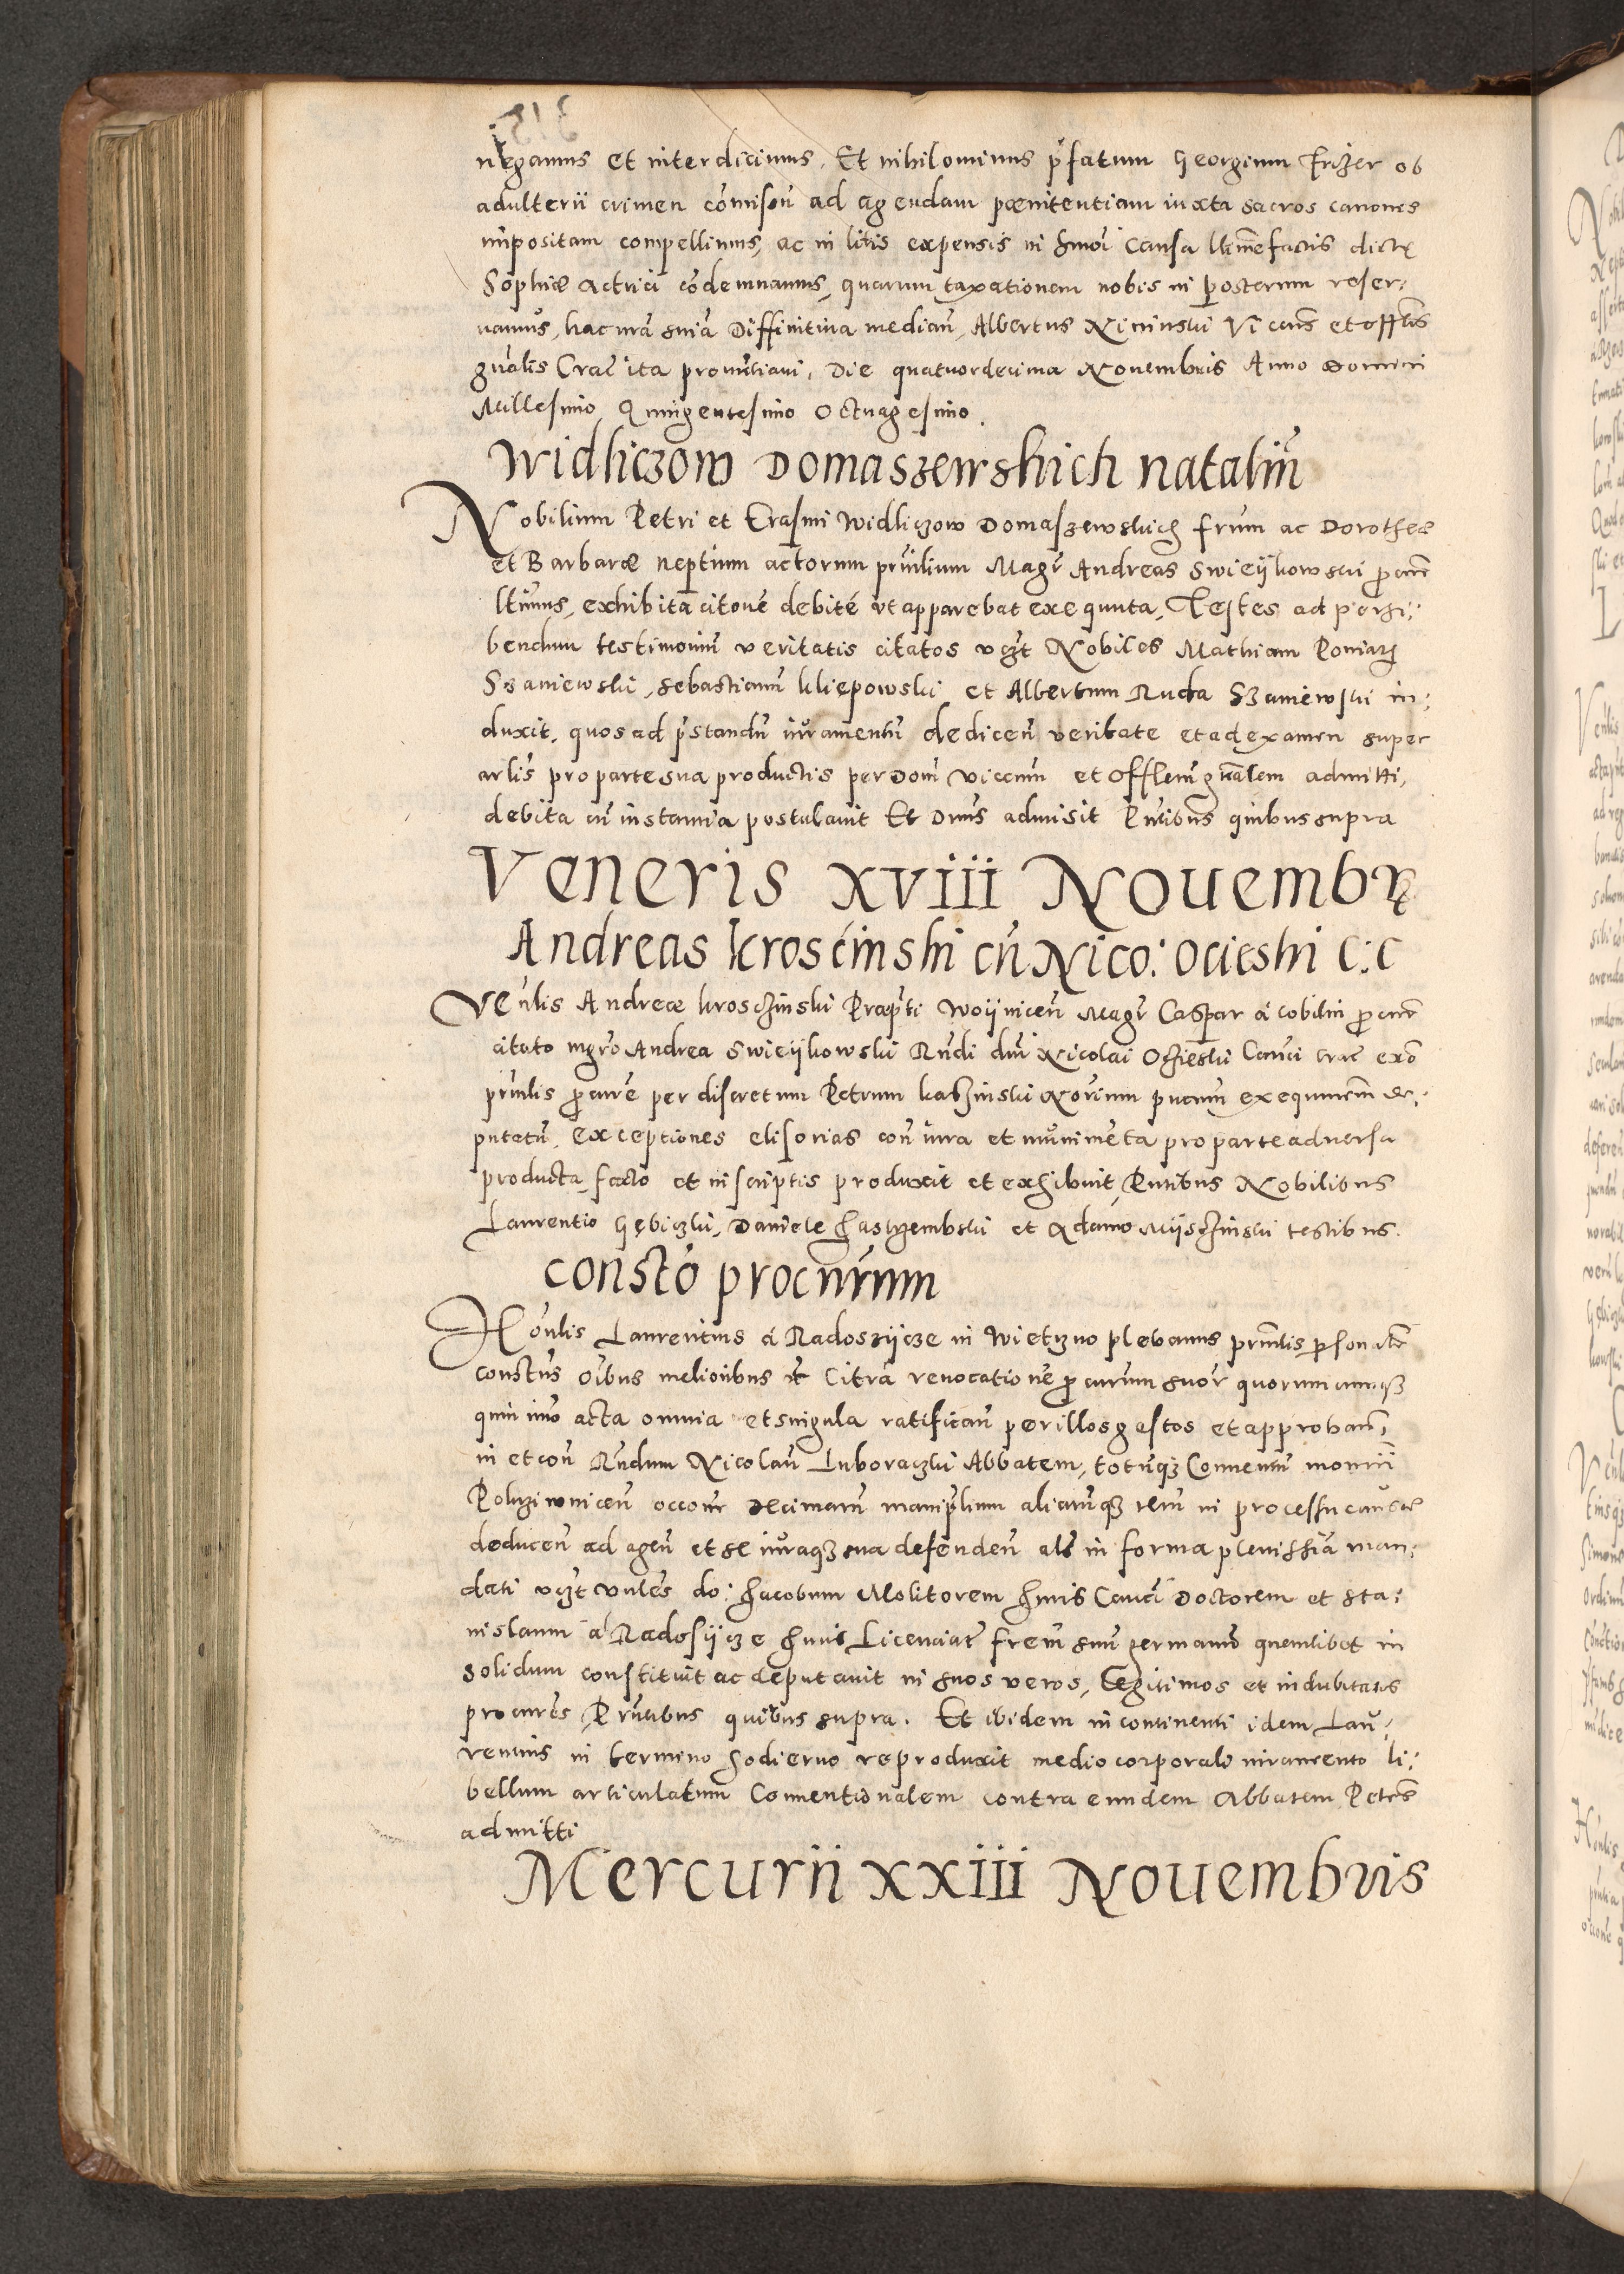 negamus et interdicimus. Et nihilominus p̃fatum Georgium Frizer ob
adulterii crimen cõmissũ ad agendam pœnitentiam iuxta sacros canones
impositam compellimus, ac in litis expensis in hmõi causa ltimẽ factis dictę
Sophiæ actrici cõdemnamus, quarum taxationem nobis in posterum reser:
uamus, hac nrã sniã Diffinitiua median̄, Albertus Nininski Vicens̃ et offlis
gnãlis Crac̃ ita pronũtiaui, Die quatuordecima Nouembris Anno Domini
Millesimo Quingentesimo Octuagesimo.
Widliczow Domaszewskich nataliũ
Nobilium Petri et Erasmi Widliczow Domaszewskich frũm ac Dorotheæ
et Barbaræ neptium actorum prñlium Magr̃ Andreas Swieykowski
ltimus, exhibita citõne debitẽ ut apparebat exequuta, Testes ad perhi:
bendum testimoniũ veritatis citatos vzt Nobiles Mathiam
Szaniewski, Sebastianũ Kliepowski et Albertum Ruda Szaniewski in:
duxit, quos ad p̃standũ iuramentũ de dicen̄ veritate et ad examen super
arlis pro parte sua productis per Dom̃ Vicenm̃ et Offlem̃ gñalem admitti,
debita cũ instantia postulauit Et Dnus admisit Pñtibus quibus supra
Veneris XVIII Nouembrꝭ
Andreas kroscinski cũ Nico: Ocieski C: C
Veñlis Andreæ kroschinski Prapt̃i Woyniceñ Magr̃ Caspar a Cobilin
citato mgrõ Andrea Swieykowski Rñdi dni Nicolai Ochieski Canci Crac̃ exõ
prñlis per discretum Petrum kaczinski Norium exequutem de:
putatũ, exceptiones elisorias con̄ iura et munimẽta pro parte aduersa
producta facto et in scriptis produxit et exhibuit, Pñtibus Nobilibus
Laurentio Gębiczki, Daniele Jastrzembski et Adamo Myschinski testibus.
Constõ procurũm
Honlis Laurentius a Radoszijcze in Wietrzno plebanus
constus oĩbus melioribus et citra reuocationẽ suor̃ quorumcunqz
quin imo acta omnia et singula ratifican̄ per illos gestos et approban̄,
in et con̄ Rndum Nicolaũ Luboraczki Abbatem, totumqz Conuentũ
occone Decimarũ manip̃lium aliarũqz rerũ in processu causæ
deducen̄ ad agen̄ et se iuraqz sua defenden̄ als in forma plenissiã man:
dati vzt Vnles do: Jacobum Molitorem Juris Canci Doctorem et Sta:
nislaum a Radosijcze Juris Licenciat̃ frem̃ suũ germanũ quemlibet in
solidum constituit ac deputauit in suos veros, legitimos et indubitatos
procures, Prñtibus quibus supra. Et ibidem in continenti idem Lau:
rentius in termino hodierno reproduxit medio corporali iuramento li:
bellum articulatum Conuentionalem contra eundem Abbatem Petens
admitti
Mercurii XXIII Nouembris